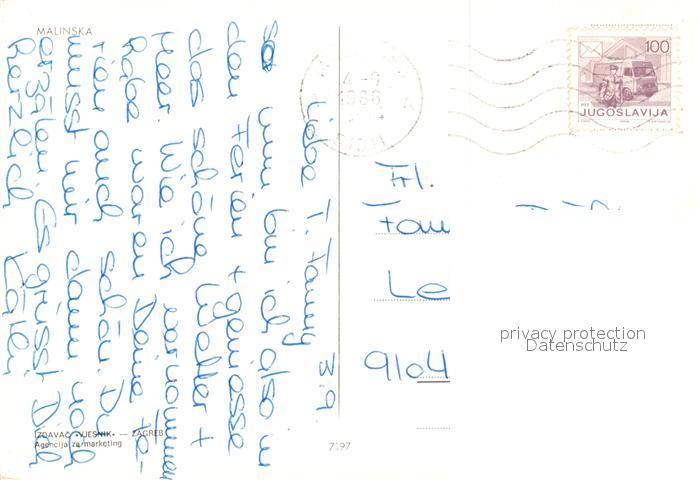 MALINSKA
Liebe T. Fanny 3.9.
so nun bin ich also in
den Ferien + geniesse
das schöne Wetter +
Meer. Wie ich vernommen
habe waren Deine Fe-
rien auch schön. Du
musst mir dann noch
erzählen. Es grüsst Dich
herzlich
IZDAVAČ «VJESNIK» — ZAGREB
Agencija za marketing
7197
1988
100
PTT
JUGOSLAVIJA
Frl.
Le
9104
privacy protection
Datenschutz